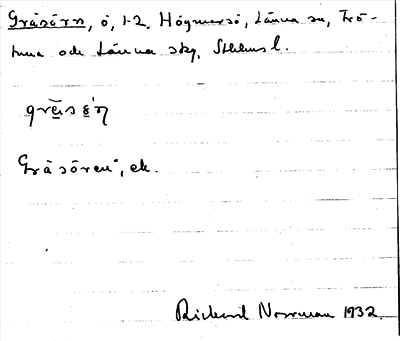 Gråsörn, ö, 1-2, Högmarsö, Länna sn, Frö-
tuna och Länna skg, Sthlms l.
Gråsören, ek.
Richard Norrman 1932.